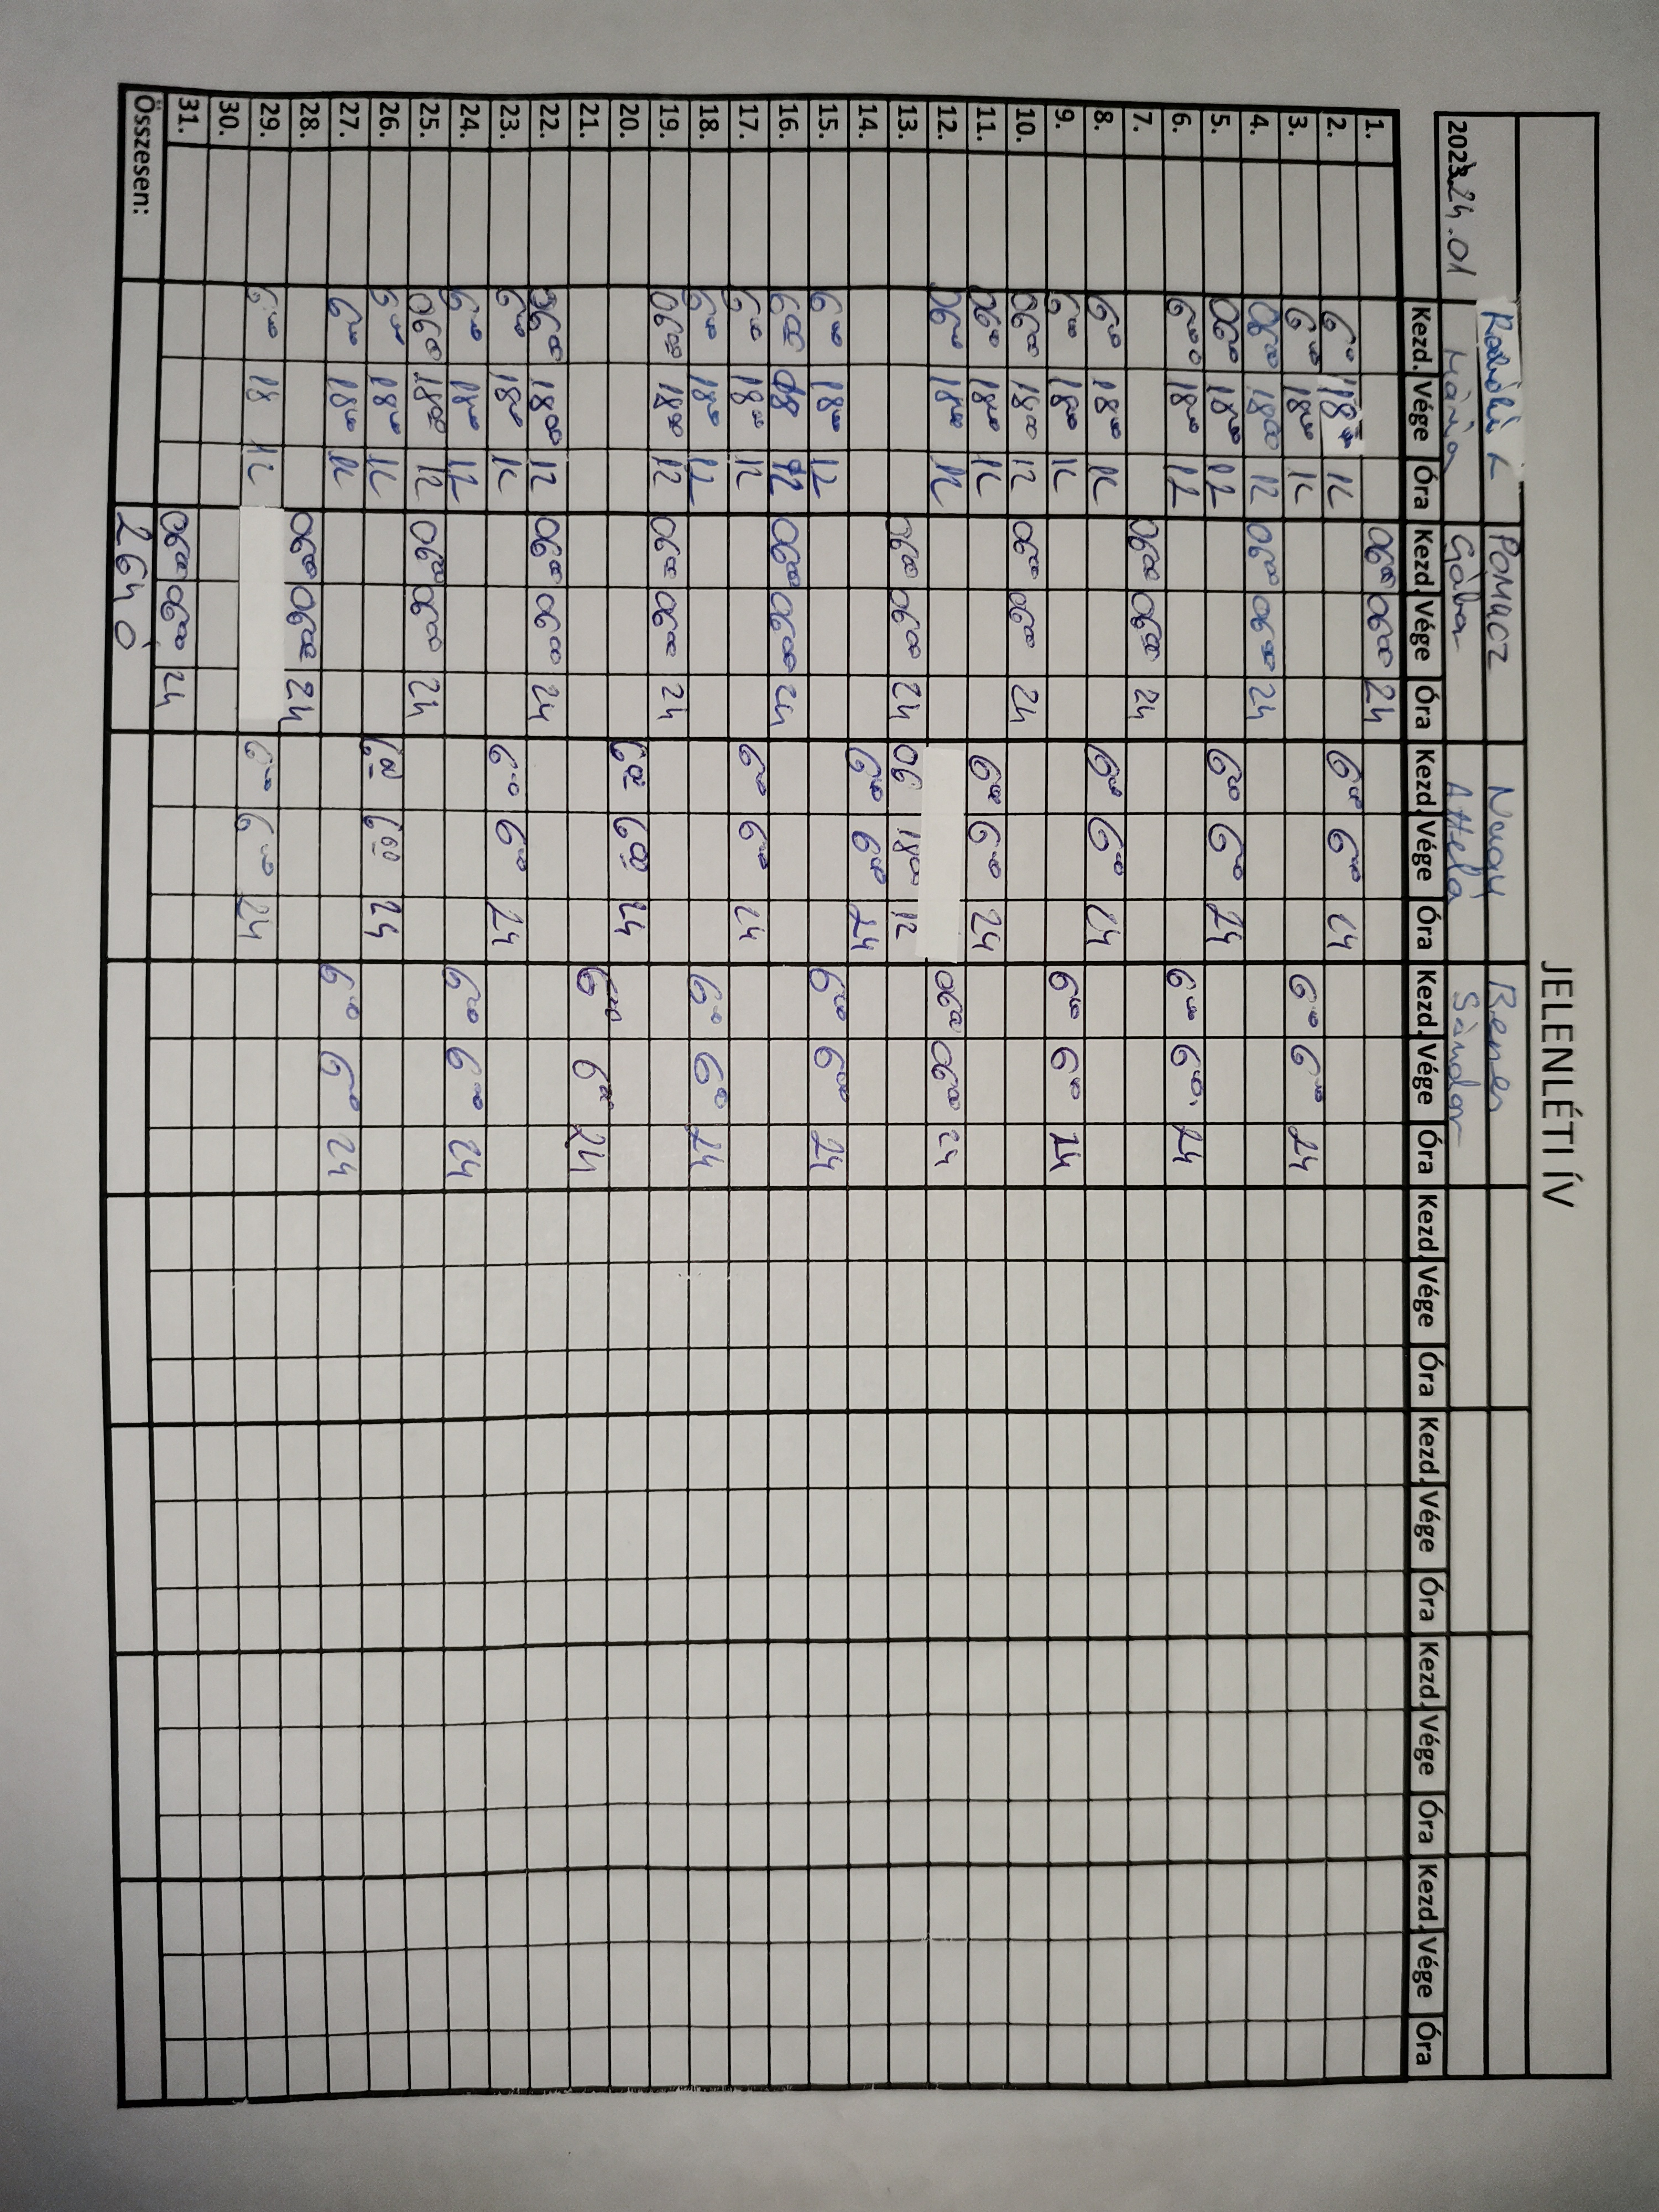 JELENLÉTI ÍV
Pomucz Nagy Renes
2023.24.01 Mária Gábor Attila Sándor
Kezd. Vége Óra Kezd. Vége Óra Kezd. Vége Óra Kezd. Vége Óra Kezd. Vége Óra Kezd. Vége Óra Kezd. Vége Óra Kezd. Vége Óra
1. 0600 0600 24
2. 6 00 18 00 12 6 00 6 00 24
3. 6 00 18 00 12 6 00 6 00 24
4. 0600 1800 12 0600 0600 24
5. 0600 1800 12 6 00 6 00 24
6. 6 00 18 00 12 6 00 6 00 24
7. 0600 0600 24
8. 6 00 18 00 12 6 00 6 00 24
9. 6 00 18 00 12 6 00 6 00 24
10. 0600 1800 12 0600 0600 24
11. 0600 1800 12 6 00 6 00 24
12. 0600 1800 12 0600 0600 24
13. 0600 0600 24 06 18 00 12
14. 6 00 6 00 24
15. 6 00 18 00 12 6 00 6 00 24
16. 600 18 12 0600 0600 24
17. 6 00 18 00 12 6 00 6 00 24
18. 6 00 18 00 12 6 00 6 00 24
19. 0600 1800 12 0600 0600 24
20. 6 00 6 00 24
21. 6 00 6 00 24
22. 0600 1800 12 0600 0600 24
23. 6 00 18 00 12 6 00 6 00 24
24. 6 00 18 00 12 6 00 6 00 24
25. 0600 1800 12 0600 0600 24
26. 6 00 18 00 12 6 00 6 00 24
27. 6 00 18 00 12 6 00 6 00 24
28. 0600 0600 24
29. 6 00 18 12 6 00 6 00 24
30.
31. 0600 0600 24
Összesen: 264 Ó